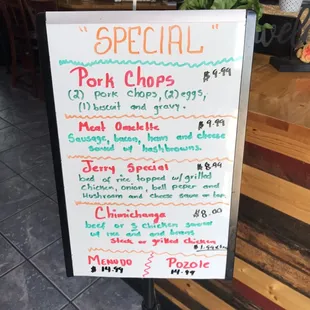 "SPECIAL"
Pork Chops
$9.99
(2) Pork Chops, (2) eggs,
(1) biscuit and gravy.
Meat Omelette
$9.99
Sausage, bacon, ham and cheese
served w/ hashbrowns.
Jerry Special
$8.99
bed of rice topped w/ grilled
Chicken, onion, bell peper and
Mushroom and cheese sauce on
Chimichanga
$8.00
beef or chicken served
w/ rice and beans
Steak or grilled chicken
$1.99
MENUDO
$14.99
POZOLE
14.99